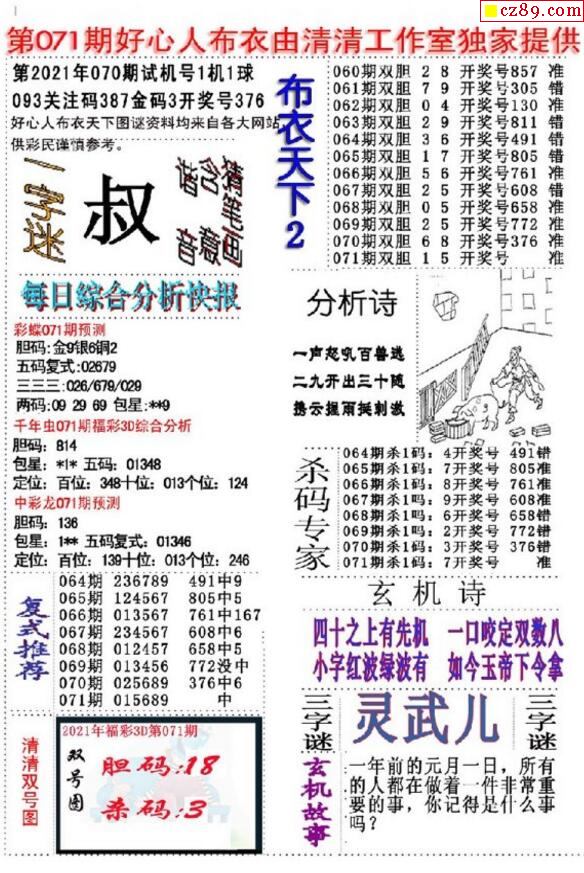 cz89.com
第071期好心人布衣由清清工作室独家提供
第2021年070期试机号1机1球
093关注码387金码3开奖号376
好心人布衣天下图谜资料均来自各大网站,
供彩民谨慎参考。
一字迷
叔
谐音
含意
猜笔画
每日综合分析快报
彩蝶071期预测
胆码:金9银6铜2
五码复式:02679
三三三:026/679/029
两码:09 29 69 包星:**9
千年虫071期福彩3D综合分析
胆码: 814
包星: *1* 五码: 01348
定位: 百位: 348十位: 013个位: 124
中彩龙071期预测
胆码: 136
包星: 1** 五码复式: 01346
定位: 百位: 139十位: 013个位: 246
复式推荐
064期 236789 491中9
065期 124567 805中5
066期 013567 761中167
067期 234567 608中6
068期 012457 658中5
069期 013456 772没中
070期 025689 376中6
071期 015689 中
清清双号图
2021年福彩3D第071期
双号图
胆码:18
杀码:3
布衣天下2
060期双胆 2 8 开奖号857 准
061期双胆 7 9 开奖号305 错
062期双胆 0 4 开奖号130 准
063期双胆 2 9 开奖号811 错
064期双胆 3 6 开奖号491 错
065期双胆 1 7 开奖号805 错
066期双胆 5 6 开奖号761 准
067期双胆 2 5 开奖号608 错
068期双胆 0 5 开奖号658 准
069期双胆 2 5 开奖号772 准
070期双胆 6 8 开奖号376 准
071期双胆 1 5 开奖号 准
分析诗
一声怒吼百兽逃
二九开出三十随
携云握雨挺刺激
杀码专家
064期杀1码: 4开奖号 491错
065期杀1码: 7开奖号 805准
066期杀1码: 8开奖号 761准
067期杀1吗: 9开奖号 608准
068期杀1码: 6开奖号 658错
069期杀1吗: 2开奖号 772错
070期杀1码: 3开奖号 376错
071期杀1码: 7开奖号 准
玄机诗
四十之上有先机 一口咬定双数八
小字红波绿波有 如今玉帝下令拿
三字谜
灵武儿
三字谜
玄机故事
一年前的元月一日，所有
的人都在做着一件非常重
要的事，你记得是什么事
吗？